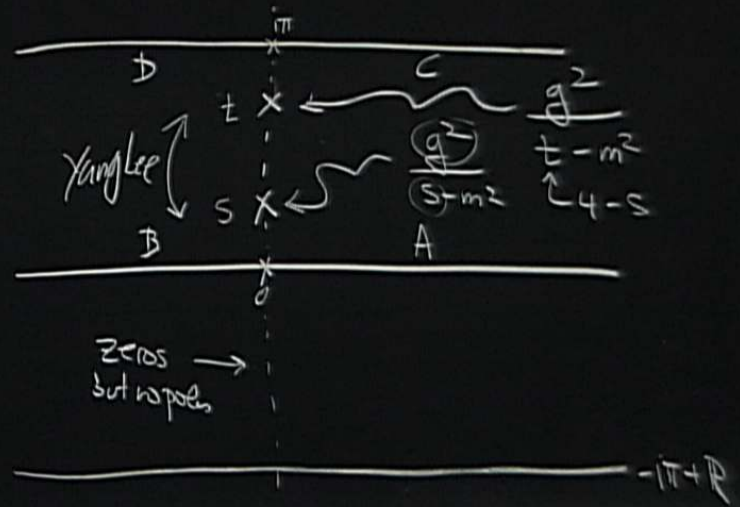 iπ
D
C
t
g²
t - m²
4 - s
Yang Lee
g²
s - m²
s
B
A
0
zeros
but no poles
- iπ + ℝ